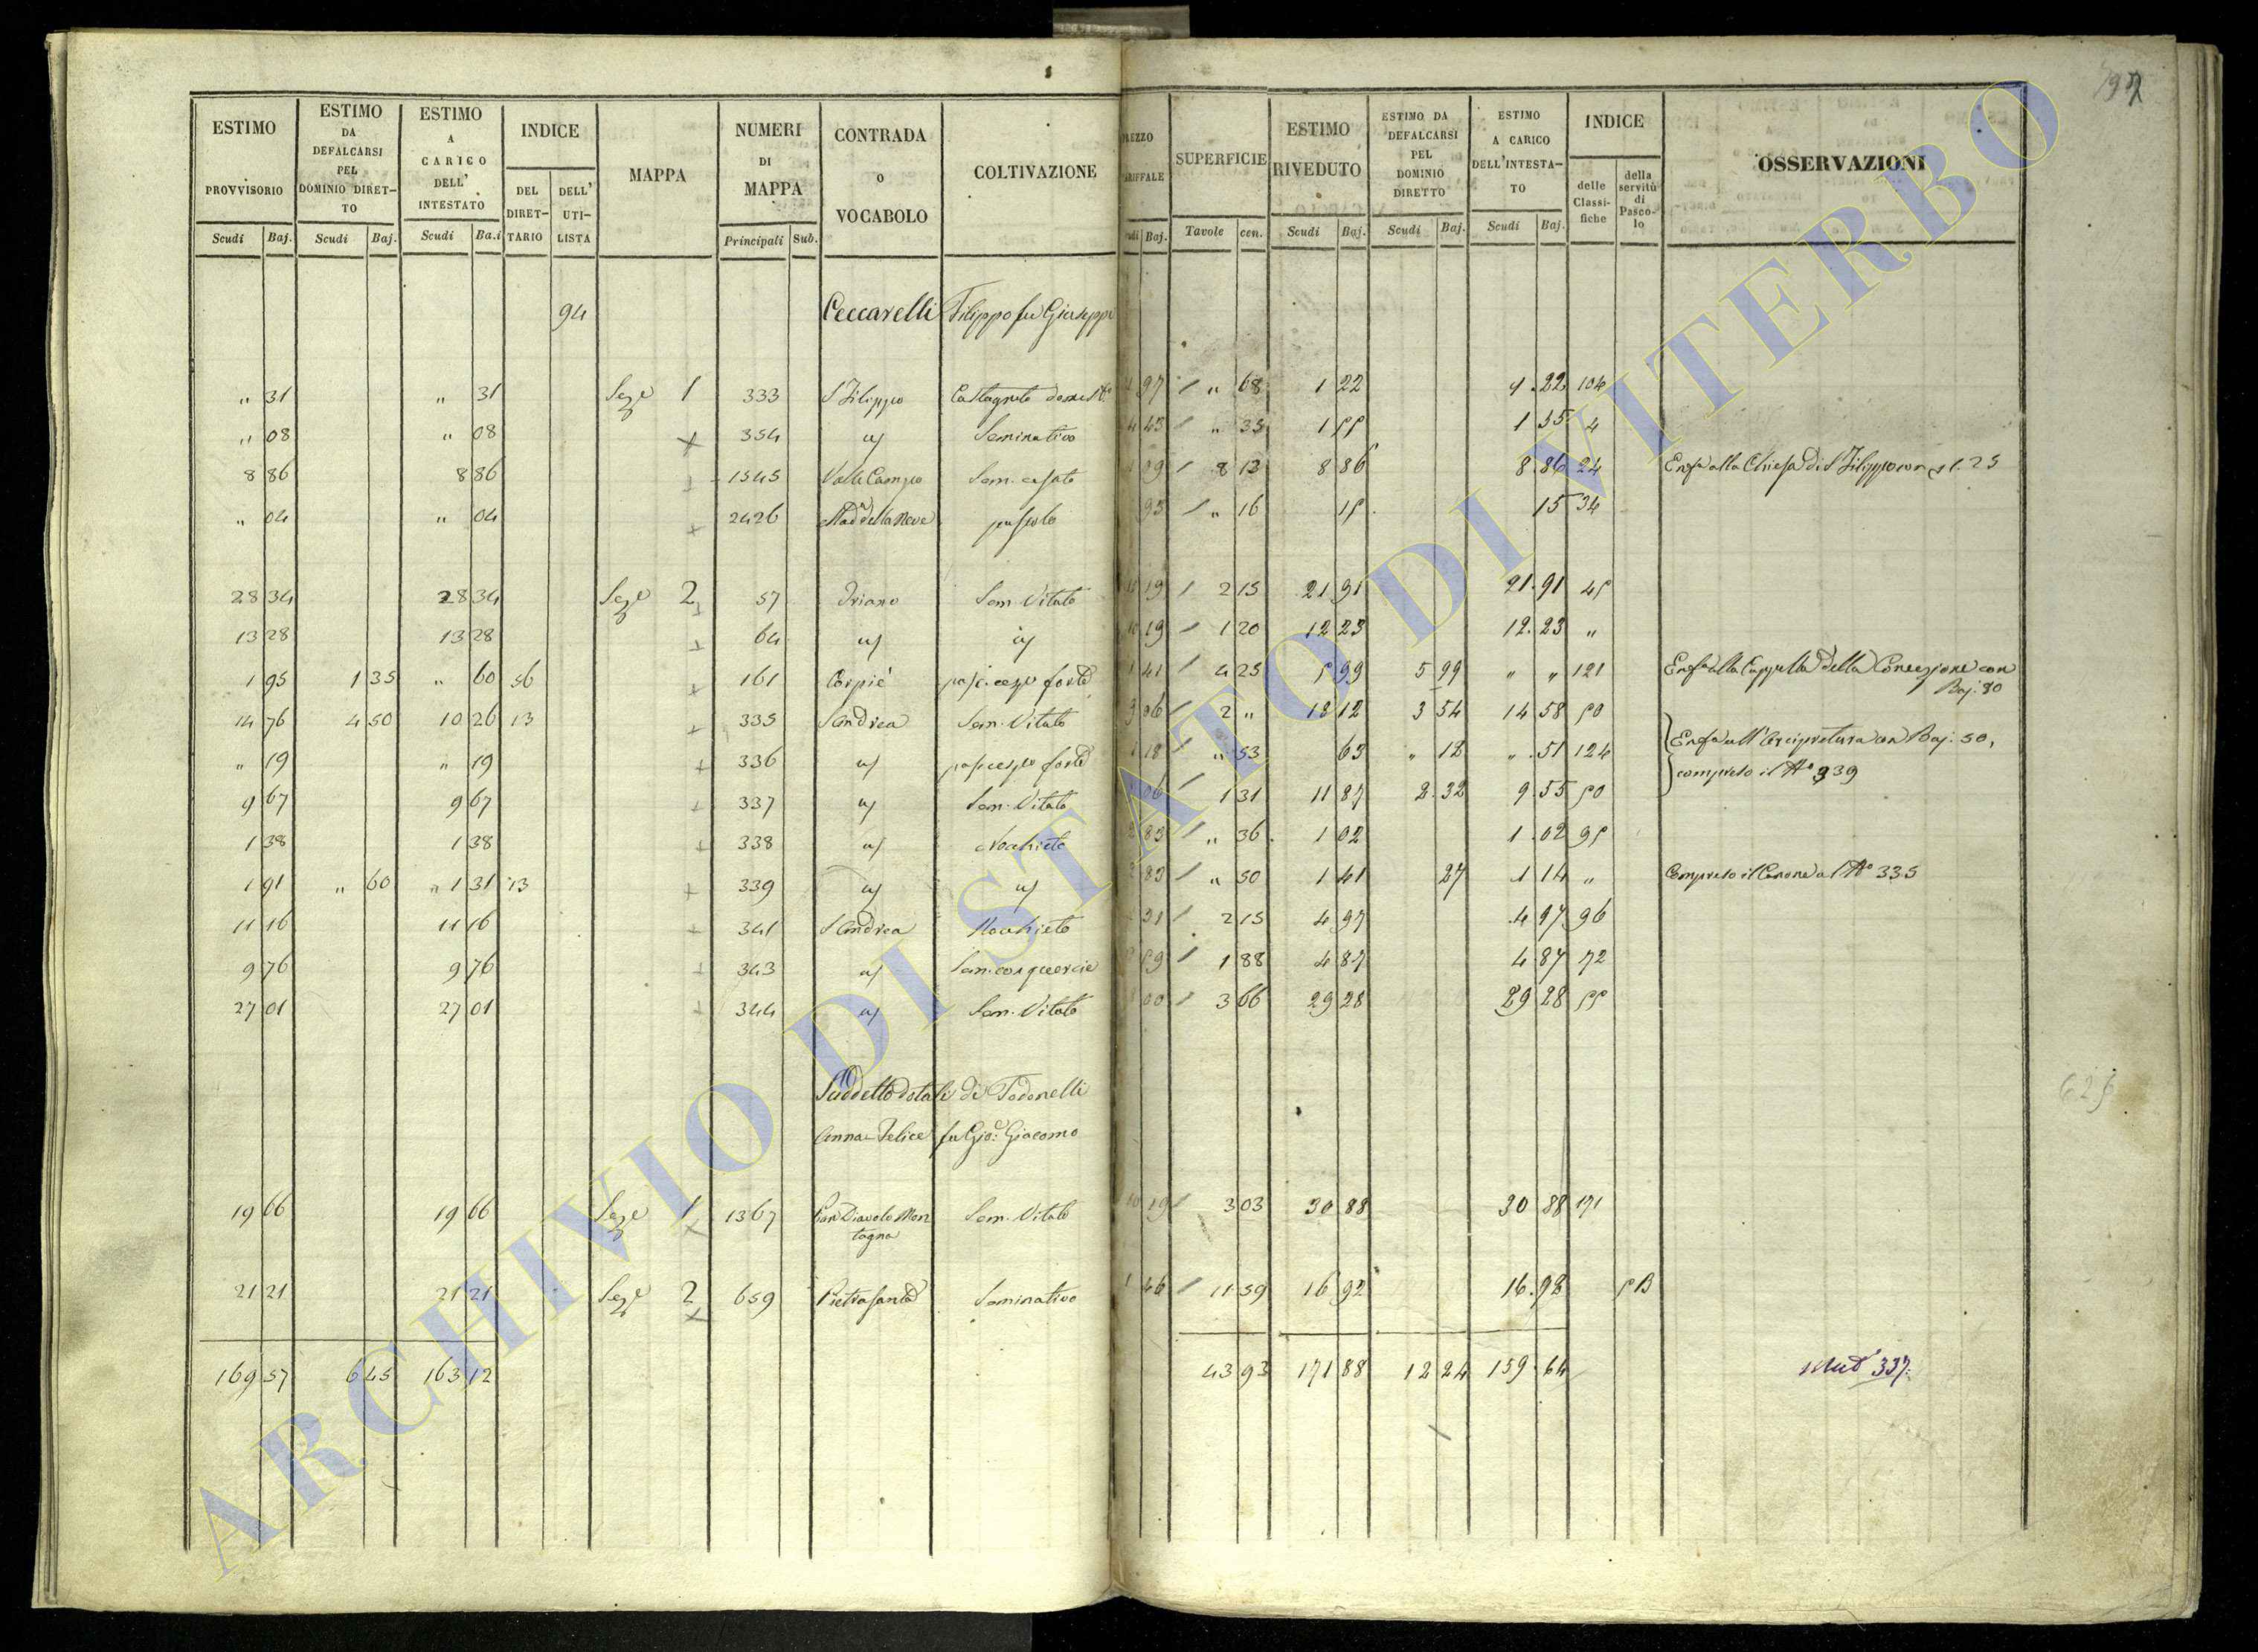 ESTIMO PROVVISORIO Scudi Baj. ESTIMO DA DEFALCARSI PEL DOMINIO DIRETTO Scudi Baj. ESTIMO A CARICO DELL' INTESTATO Scudi Ba.i INDICE DEL DIRETTARIO DELL' UTILISTA MAPPA NUMERI DI MAPPA Principali Sub. CONTRADA O VOCABOLO COLTIVAZIONE
94 Ceccarelli Filippo fu Giuseppe
" 31 " 31 Sez.e 1 333 S Filippo Castagneto domest.
" 08 " 08 354 id Seminativo
8 86 8 86 1545 Valle Campo Sem. casato
" 04 " 04 2426 Mad.a della Neve pascolo
28 34 28 34 Sez.e 2 57 Sem. Vitato
13 28 13 28 64 id id
1 95 1 35 " 60 56 161
14 76 4 50 10 26 13 335 S Andrea Sem. Vitato
" 19 " 19 336 id
9 67 9 67 337 id Sem. Vitato
1 38 1 38 338 id Nochieto
1 91 " 60 " 1 31 13 339 id id
11 16 11 16 341 S Andrea Nochieto
9 76 9 76 343 id Sem. con quercie
27 01 27 01 344 id Sem. Vitato
Suddetto dotali di Todonelli
Anna Felice fu Gio: Giacomo
19 66 19 66 Sez.e 1 1367 Pian Diavolo Mon
tagna Sem. Vitato
21 21 21 21 Sez.e 2 659 Pietrasanta Seminativo
169 57 6 45 163 12
SUPERFICIE Tavole cen. ESTIMO RIVEDUTO Scudi Baj. ESTIMO DA DEFALCARSI PEL DOMINIO DIRETTO Scudi Baj. ESTIMO A CARICO DELL'INTESTATO Scudi Baj. INDICE delle Classifiche della servitù di Pascolo OSSERVAZIONI
97 " 68 1 22 1.22 104
43 " 35 1 55 1 55 4
09 8 13 8 86 8.86 24 Enf.a alla Chiesa di S Filippo con st. 25
95 " 16 15 15 34
19 2 15 21 91 21.91 45
19 1 20 12 23 12.23 "
41 4 25 5 99 5 99 " " 121 Enf.a alla Cappella della Concezione con
Baj. 80
06 2 " 18 12 3 54 14 58 50
18 " 53 63 " 12 " .51 124 Enf.a all'Arcipretura con Baj. 50,
compreso il N.o 339
06 1 31 11 87 2.32 9.55 50
83 " 36 1 02 1.02 95
83 " 50 1 41 27 1 14 " Compreso il Canone al N.o 335
31 2 15 4 97 4 97 96
59 1 88 4 87 4 87 72
00 3 66 29 28 29 28 55
19 3 03 30 88 30 88 171
46 11 59 16 92 16.98 5 B
43 93 171 88 12 24 159.64 337.
625
ARCHIVIO DI STATO DI VITERBO